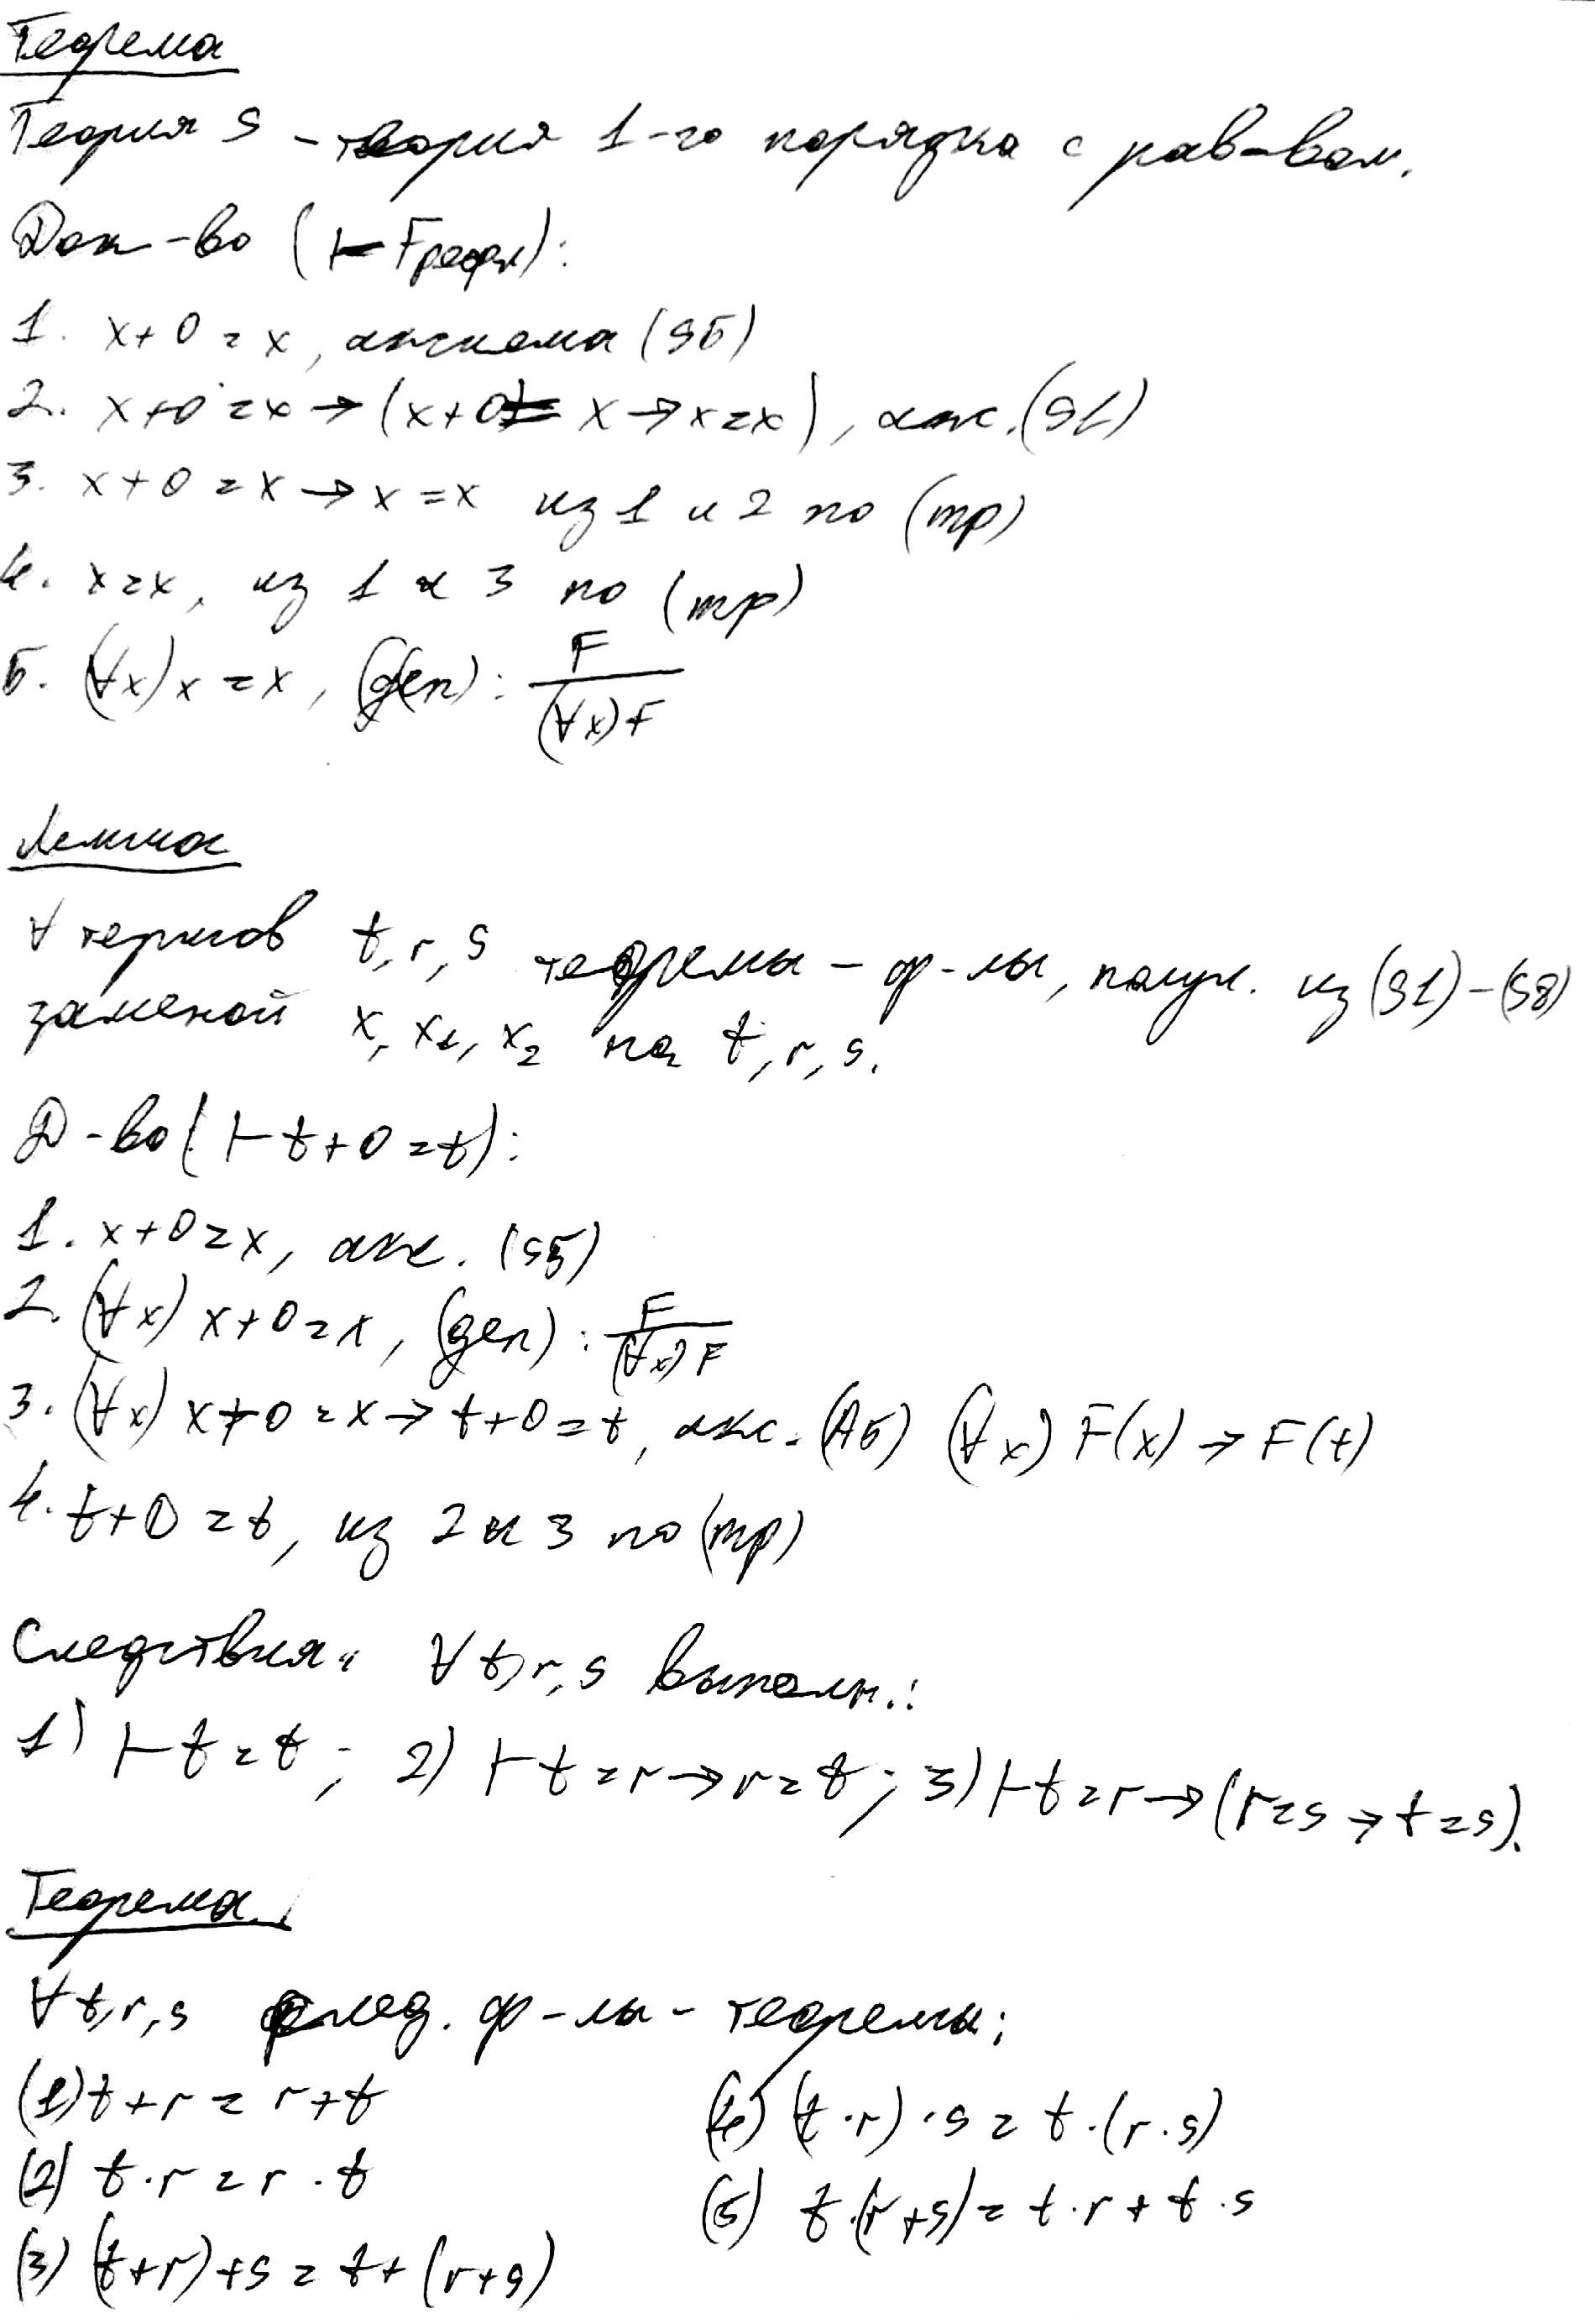 Теорема
Теория S – теория 1-го порядка с рав-вом.
Док-во (⊢ Fрефл):
1. x+0=x, аксиома (S5)
2. x+0=x→(x+0=x→x=x), акс. (S1)
3. x+0=x→x=x из 1 и 2 по (mp)
4. x=x, из 1 и 3 по (mp)
5. (∀x) x=x, (gen): F/(∀x)F
Лемма
∀ термов t, r, s теоремы – ф-лы, получ. из (S1)-(S8)
заменой x, x₁, x₂ на t, r, s.
Д-во (⊢ t+0=t):
1. x+0=x, акс. (S5)
2. (∀x) x+0=x, (gen): F/(∀x)F
3. (∀x) x+0=x→t+0=t, акс. (A5) (∀x) F(x)→F(t)
4. t+0=t, из 2 и 3 по (mp)
Следствия: ∀ t, r, s выполн.:
1) ⊢ t=t; 2) ⊢ t=r→r=t; 3) ⊢ t=r→(r=s→t=s).
Теорема.
∀ t, r, s след. ф-лы – теоремы:
(1) t+r=r+t
(2) t·r=r·t
(3) (t+r)+s=t+(r+s)
(4) (t·r)·s=t·(r·s)
(5) t·(r+s)=t·r+t·s